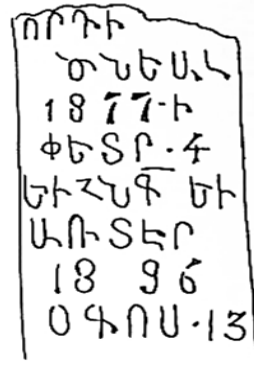 ՈՐԴԻ
ԾՆԵԱԼ
1877-Ի
ՓԵՏՐ. 4
ԵՒ ՀՆԳ ԵՒ
ՍՈՒՏԷՐ
18 96
ՕԳՈՍ. 13